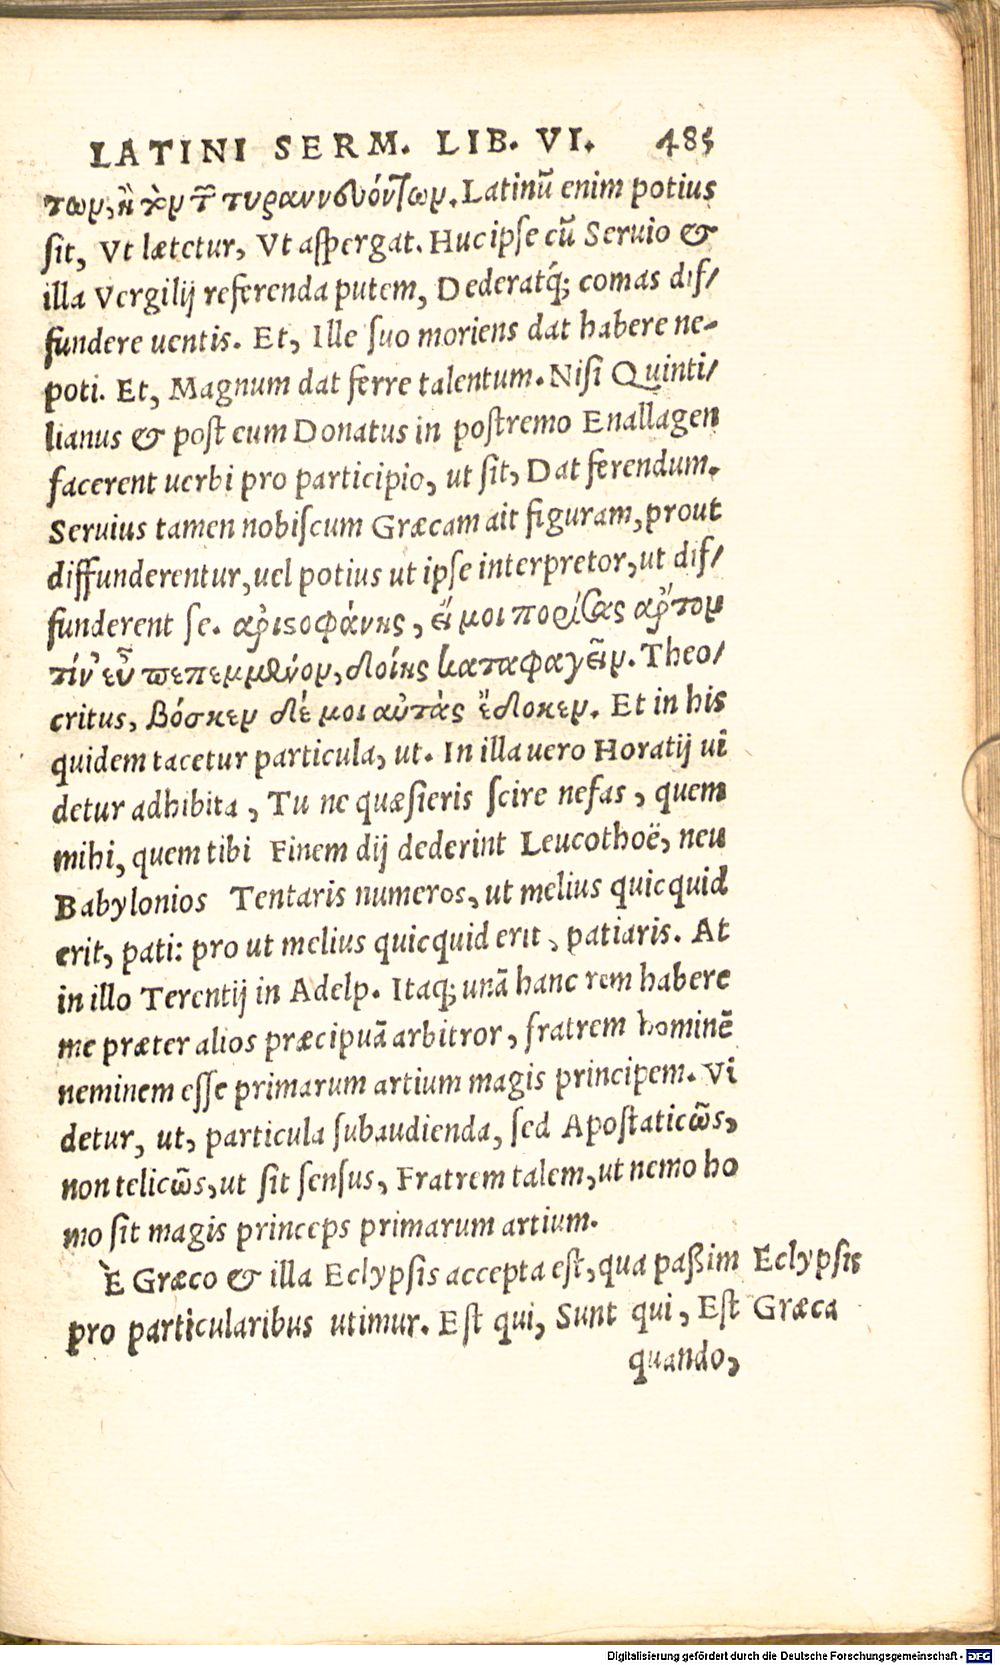 LATINI SERM. LIB. VI. 485
των, τυραννευόντων. Latinũ enim potius
sit, Vt lætetur, Vt aspergat. Huc ipse cũ Seruio &
illa Vergilij referenda putem, Dederatq́; comas dif/
fundere uentis. Et, Ille suo moriens dat habere ne-
poti. Et, Magnum dat ferre talentum. Nisi Quinti/
lianus & post eum Donatus in postremo Enallagen
facerent uerbi pro participio, ut sit, Dat ferendum.
Seruius tamen nobiscum Græcam ait figuram, prout
diffunderentur, uel potius ut ipse interpretor, ut dif/
funderent se. ἀριςοφάνης, εἴ μοι πορίσας ἄρτον
τίν᾽ εὖ πεπεμμένον, δοίης καταφαγεῖν. Theo/
critus, βόσκεν δέ μοι αὐτὰς ἔδοκεν. Et in his
quidem tacetur particula, ut. In illa uero Horatij ui
detur adhibita, Tu ne quæsieris scire nefas, quem
mihi, quem tibi Finem dij dederint Leucothoë, neu
Babylonios Tentaris numeros, ut melius quicquid
erit, pati: pro ut melius quicquid erit, patiaris. At
in illo Terentij in Adelp. Itaq; unã hanc rem habere
me præter alios præcipuã arbitror, fratrem hominẽ
neminem esse primarum artium magis principem. Vi
detur, ut, particula subaudienda, sed Apostaticῶs,
non telicῶs, ut sit sensus, Fratrem talem, ut nemo ho
mo sit magis princeps primarum artium.
È Græco & illa Eclypsis accepta est, qua paßim Eclypsis
pro particularibus utimur. Est qui, Sunt qui, Est Græca
quando,
Digitalisierung gefördert durch die Deutsche Forschungsgemeinschaft - DFG